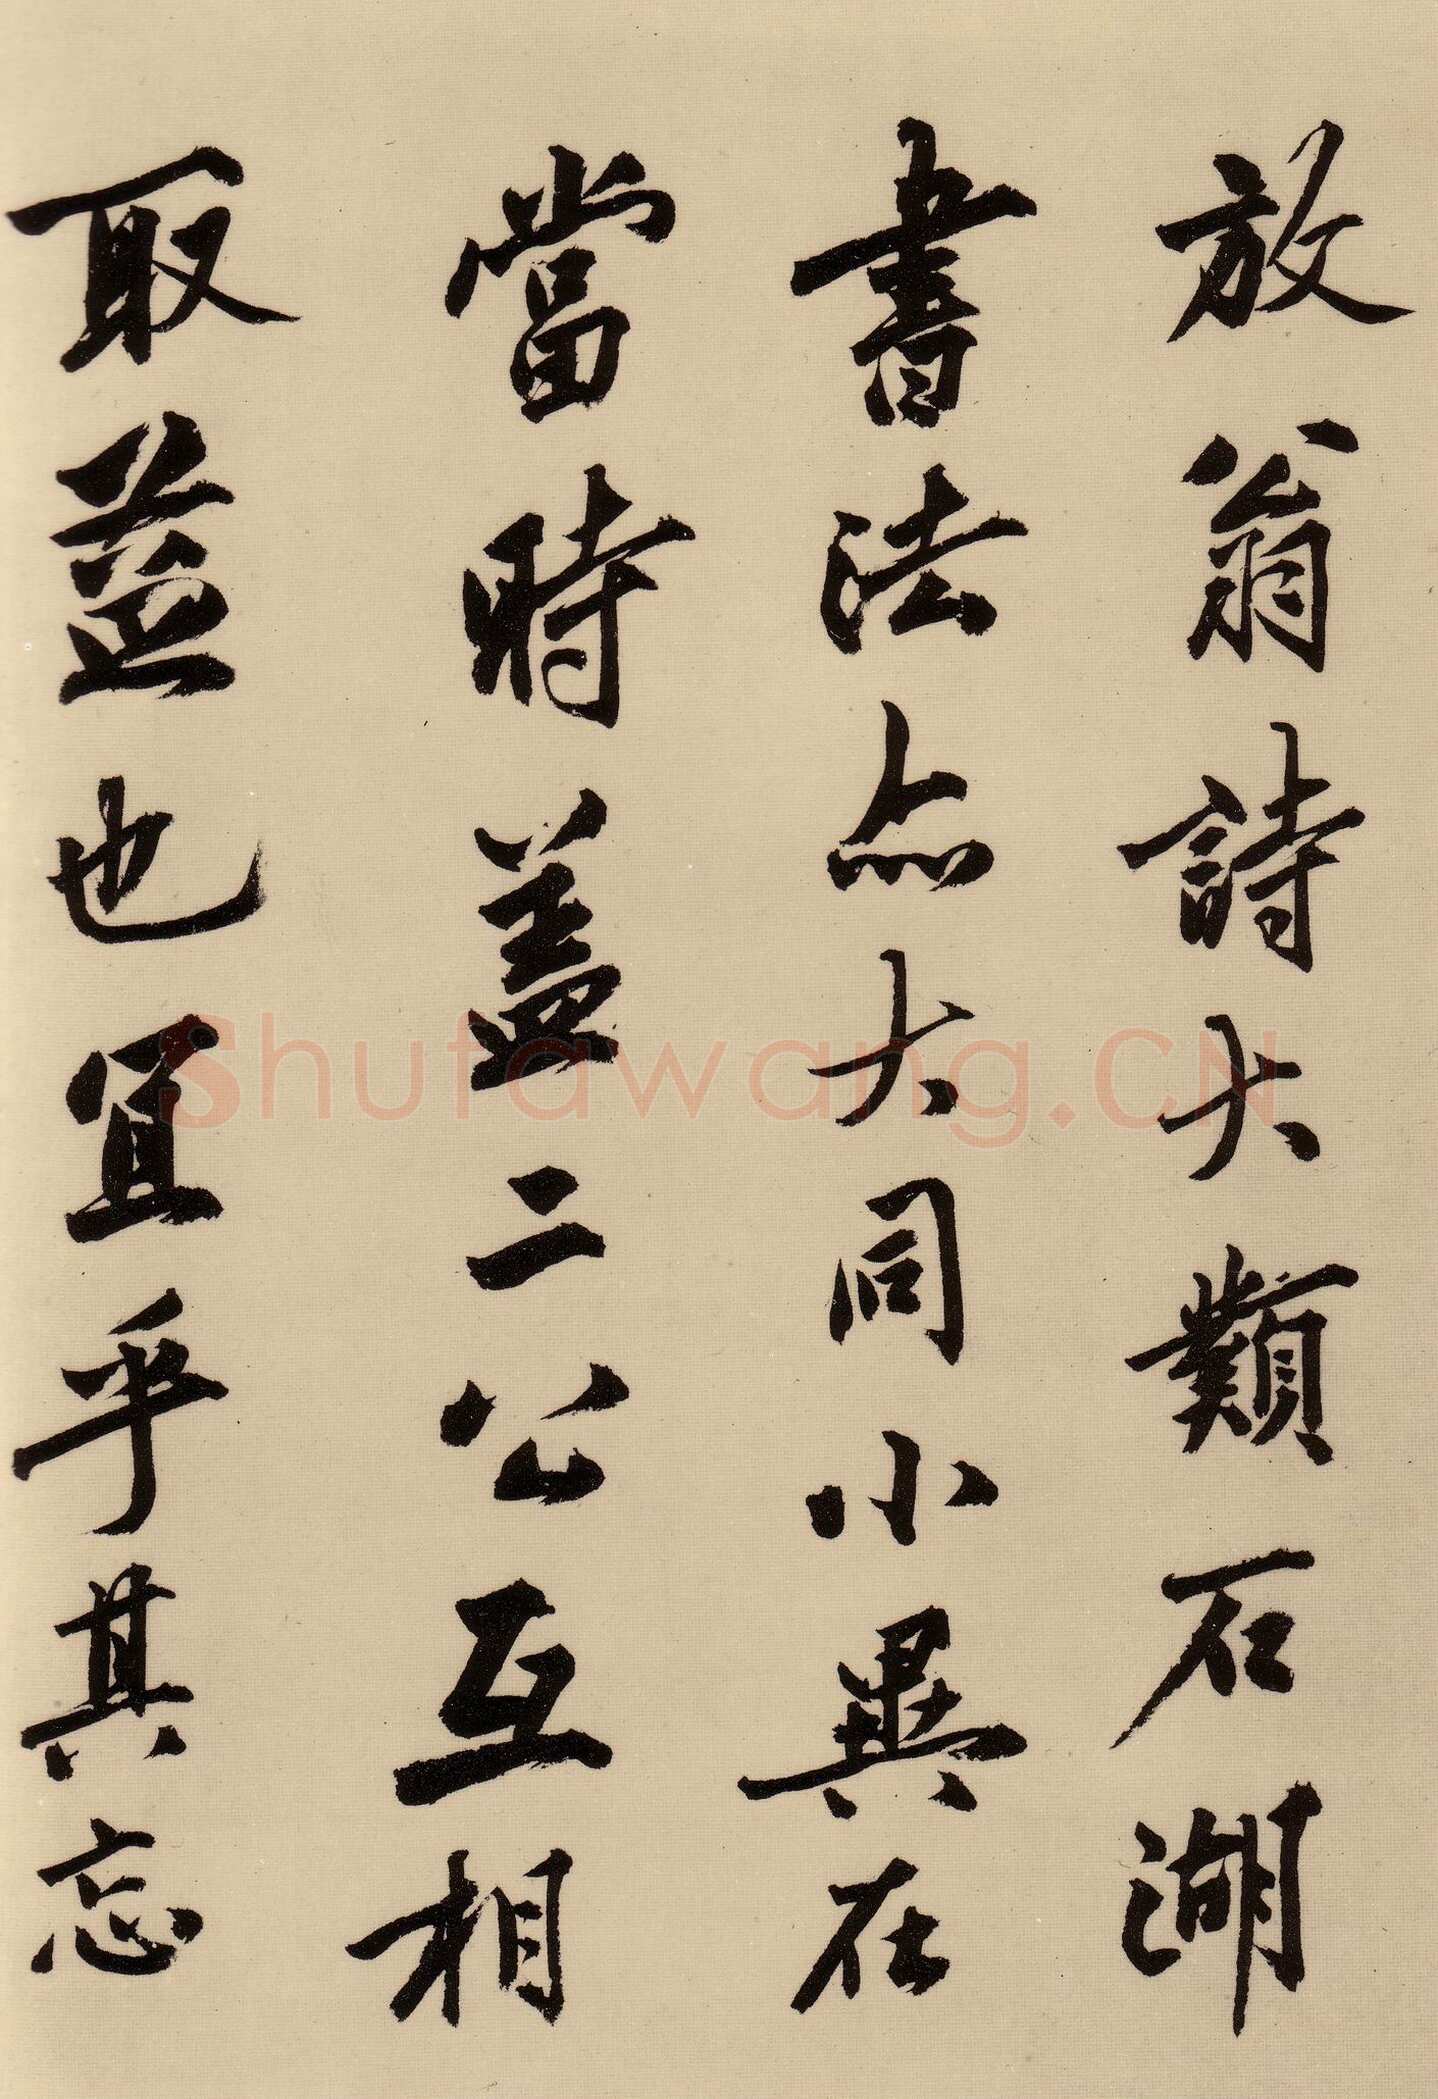 放翁詩大類石湖
書法亦大同小異在
當時蓋二公互相
取益也宜乎其忘
Shufawang.CN